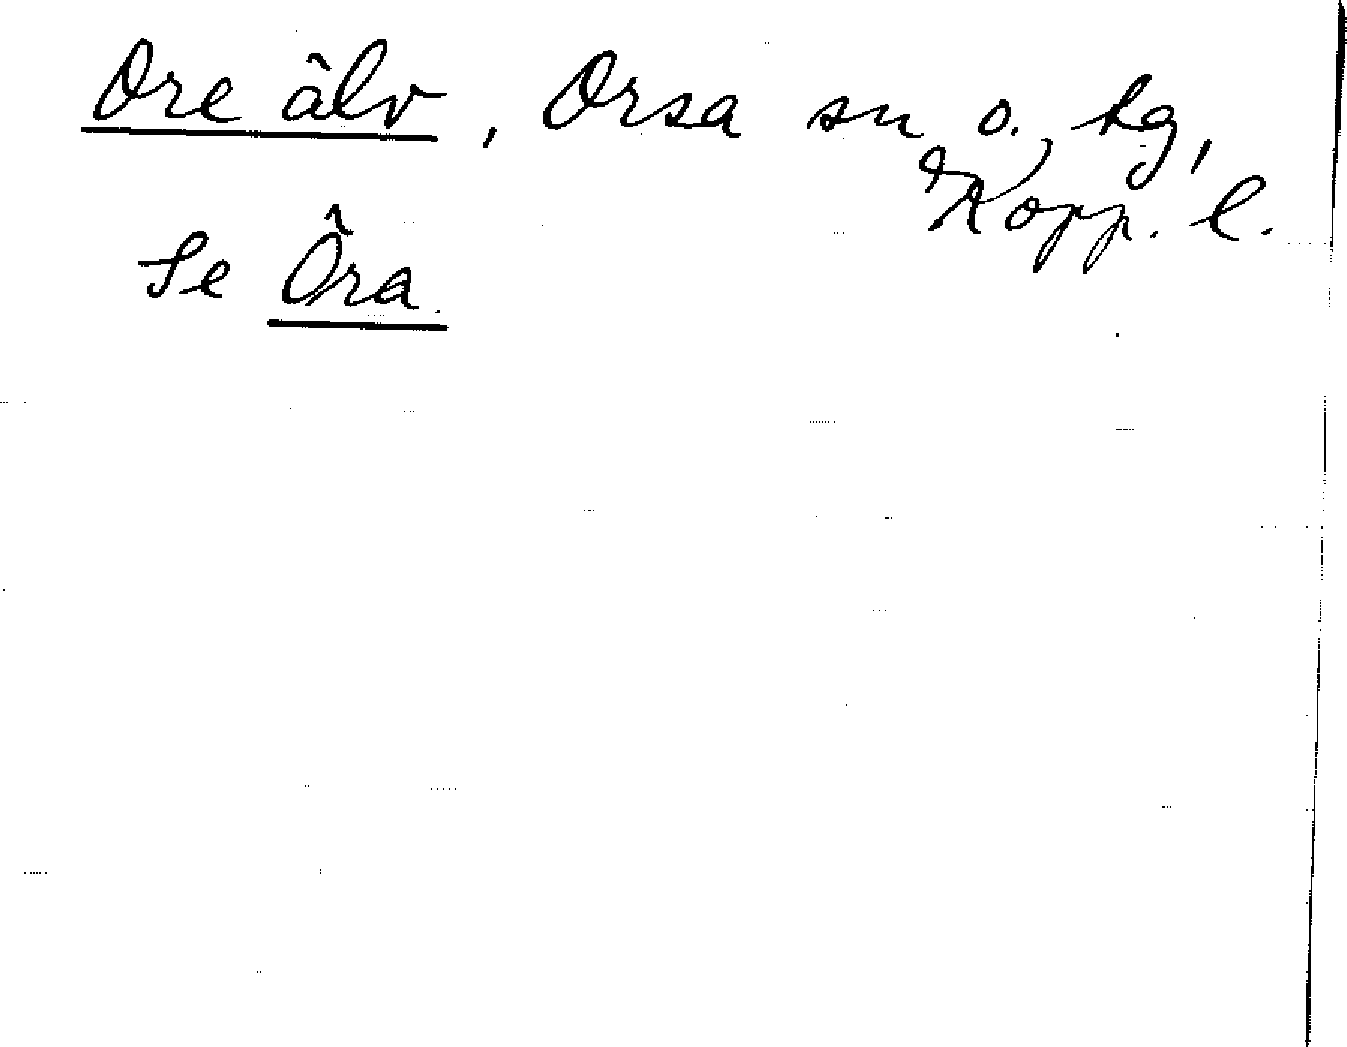 Ore älv, Orsa sn o. hg,
Kopp. l.
Se Öra.